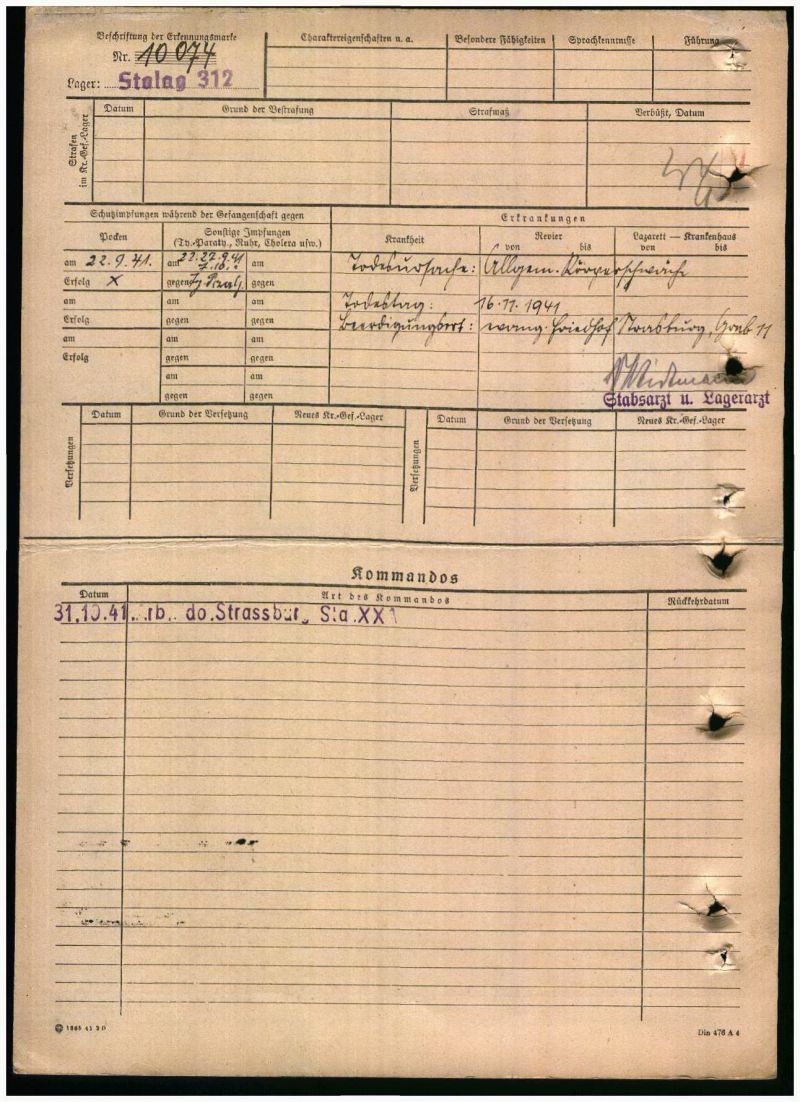 Beschriftung der Erkennungsmarke
Nr. 10 074
Lager: Stalag 312
Charaktereigenschaften u. a.
Besondere Fähigkeiten
Sprachkenntnisse
Führung
Strafen
im Kr.-Gef.-Lager
Datum
Grund der Bestrafung
Strafmaß
Verbüßt, Datum
Schutzimpfungen während der Gefangenschaft gegen
Erkrankungen
Pocken
Sonstige Impfungen
(Ty.-Paraty., Ruhr, Cholera usw.)
Krankheit
Revier
von bis
Lazarett — Krankenhaus
von bis
am 22.9.41. am 22.27.9.41 am
7.10.
Erfolg X gegen Ty gegen
Todesursache: Allgem. Körperschwäche
am am am
Todestag: 16.11.1941
Erfolg gegen gegen
Beerdigungsort: evang. Friedhof Strasburg, Grab 11
am am am
Erfolg gegen gegen
am am
gegen gegen
Stabsarzt u. Lagerarzt
Versetzungen
Datum
Grund der Versetzung
Neues Kr.-Gef.-Lager
Versetzungen
Datum
Grund der Versetzung
Neues Kr.-Gef.-Lager
Kommandos
Datum
Art des Kommandos
Rückkehrdatum
31.10.41 rb. do. Strassbur Sta. XX A
1865 41 2 D
Din 476 A 4